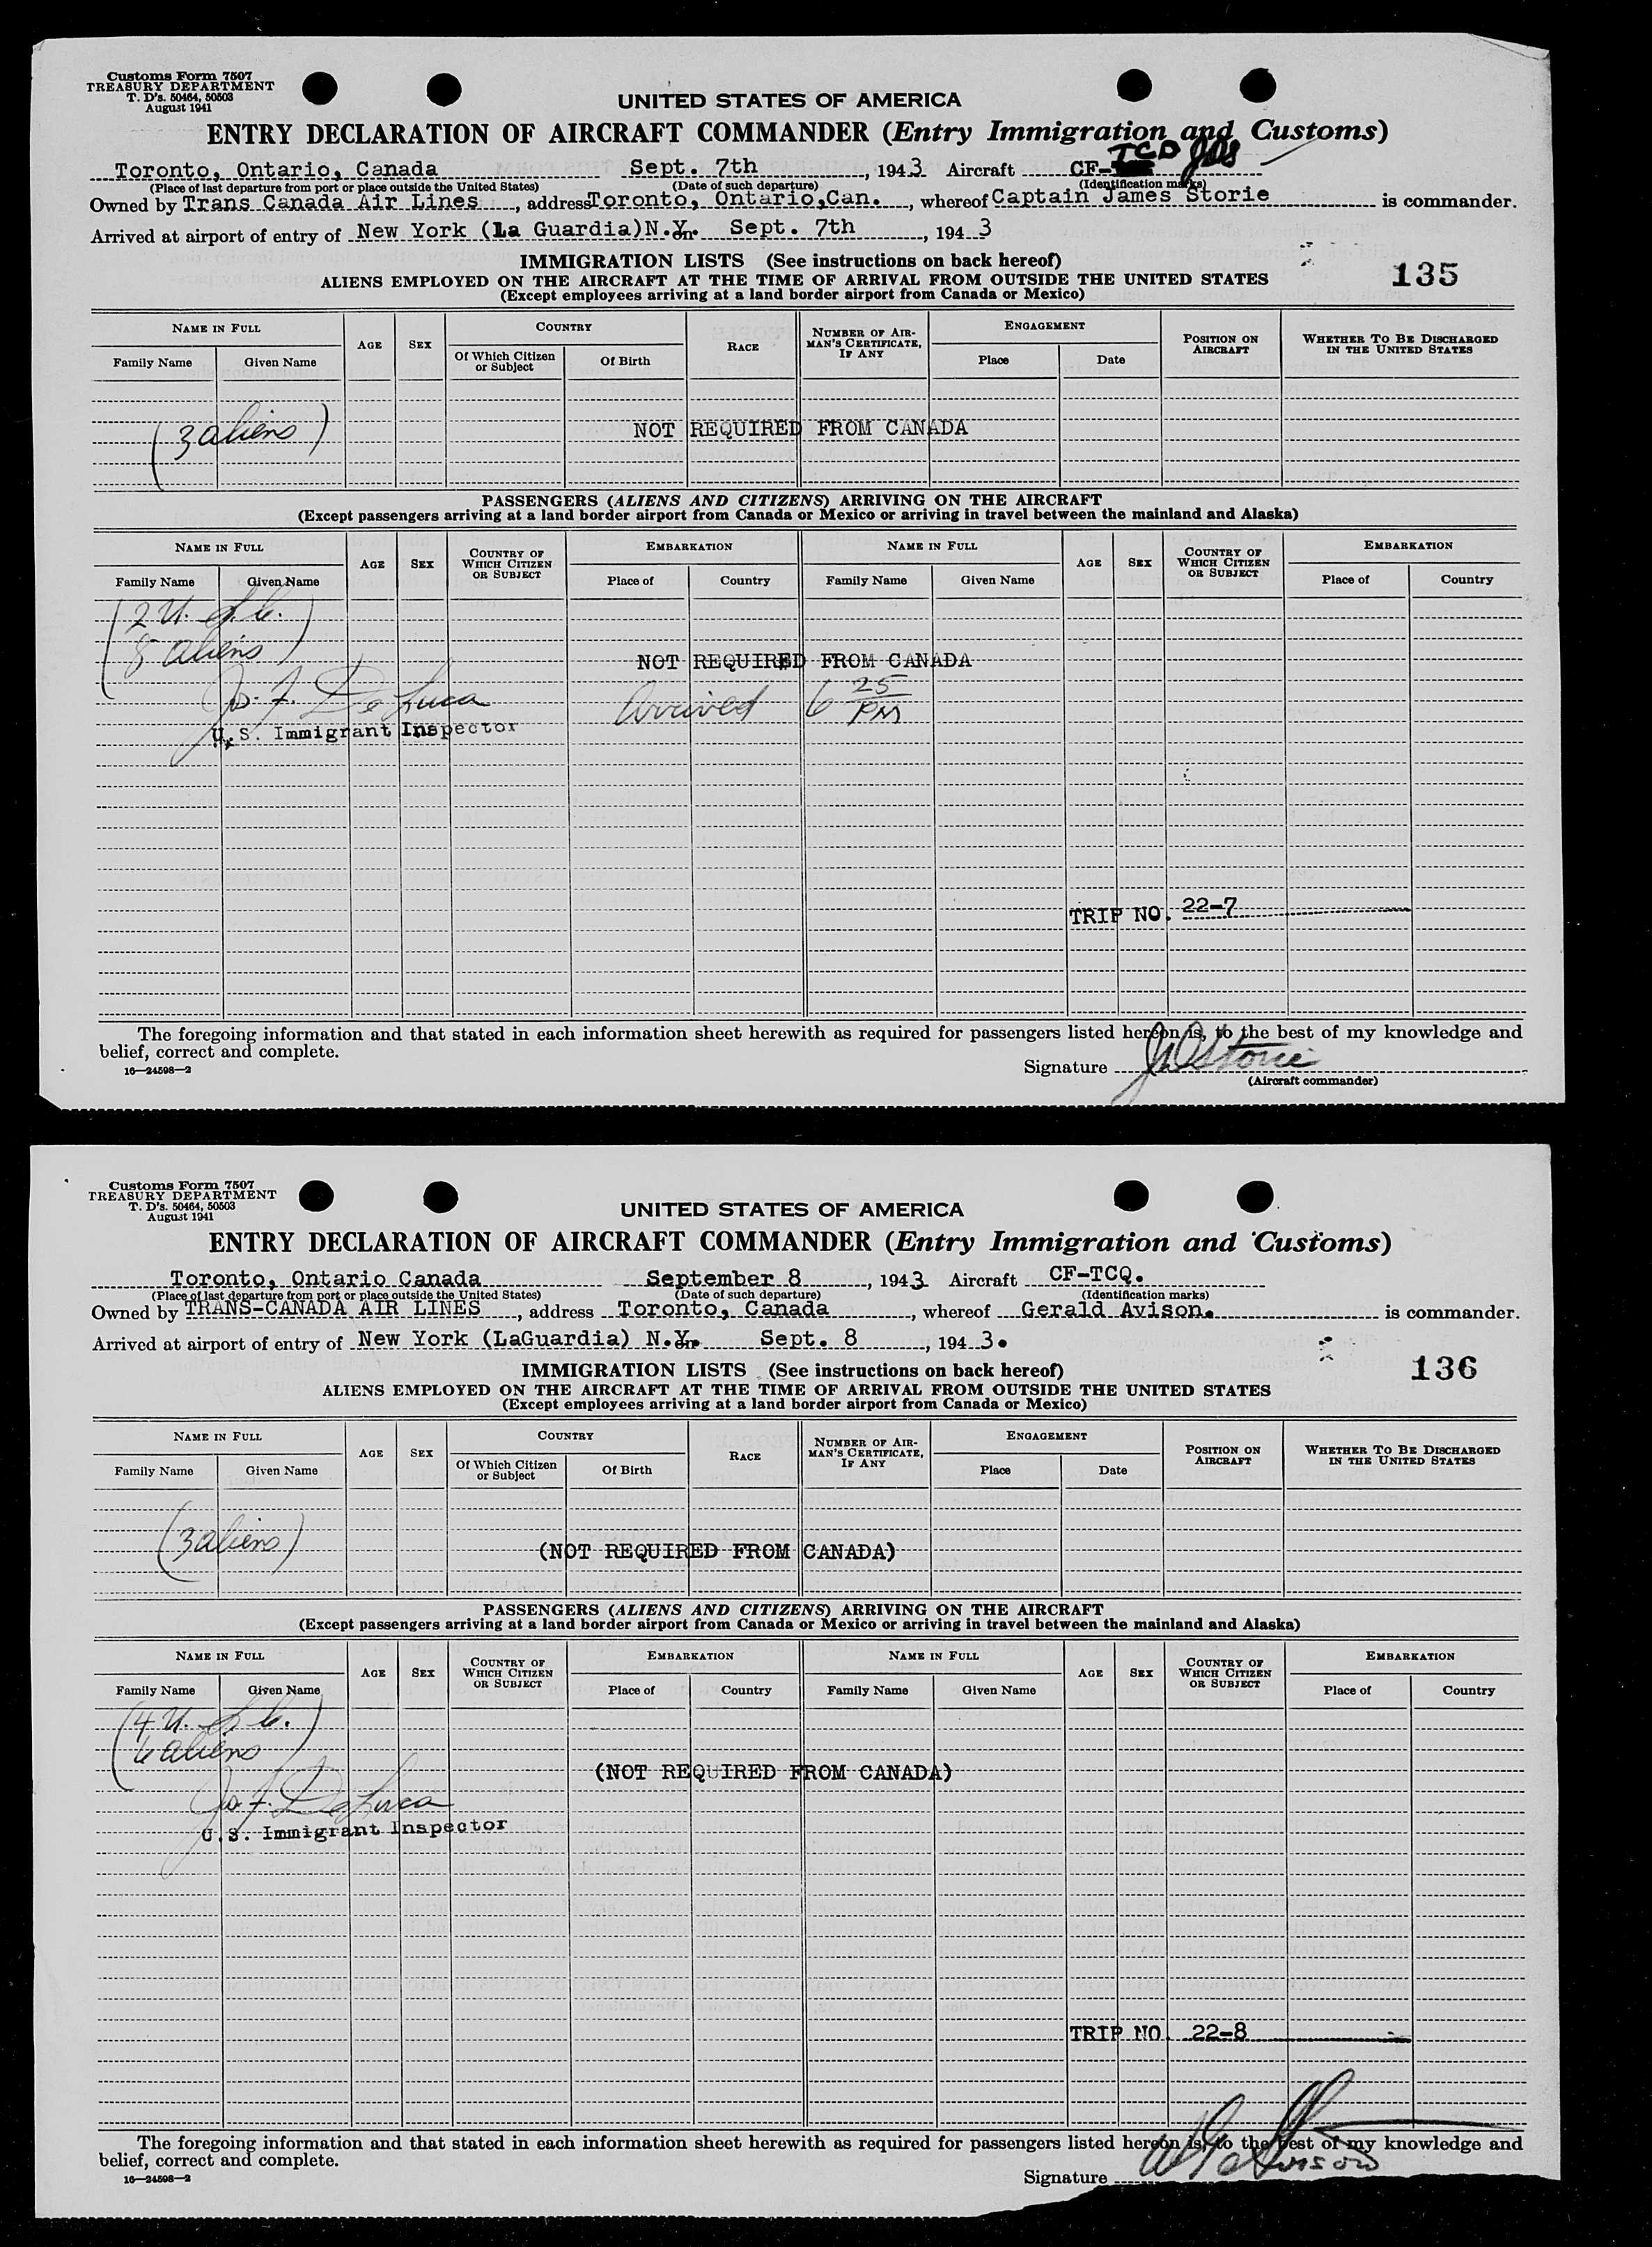 Customs Form 7507
TREASURY DEPARTMENT
T. D's. 50464, 50503
August 1941
UNITED STATES OF AMERICA
ENTRY DECLARATION OF AIRCRAFT COMMANDER (Entry Immigration and Customs)
Toronto, Ontario, Canada Sept. 7th, 1943 Aircraft CF-TCD JDS
(Place of last departure from port or place outside the United States) (Date of such departure) (Identification marks)
Owned by Trans Canada Air Lines, address Toronto, Ontario,Can., whereof Captain James Storie is commander.
Arrived at airport of entry of New York (La Guardia)N.Y. Sept. 7th, 1943
IMMIGRATION LISTS (See instructions on back hereof)
135
ALIENS EMPLOYED ON THE AIRCRAFT AT THE TIME OF ARRIVAL FROM OUTSIDE THE UNITED STATES
(Except employees arriving at a land border airport from Canada or Mexico)
NAME IN FULL AGE SEX COUNTRY RACE NUMBER OF AIRMAN'S CERTIFICATE, IF ANY ENGAGEMENT POSITION ON AIRCRAFT WHETHER TO BE DISCHARGED IN THE UNITED STATES
Family Name Given Name Of Which Citizen or Subject Of Birth Place Date
(3 aliens) NOT REQUIRED FROM CANADA
PASSENGERS (ALIENS AND CITIZENS) ARRIVING ON THE AIRCRAFT
(Except passengers arriving at a land border airport from Canada or Mexico or arriving in travel between the mainland and Alaska)
NAME IN FULL AGE SEX COUNTRY OF WHICH CITIZEN OR SUBJECT EMBARKATION NAME IN FULL AGE SEX COUNTRY OF WHICH CITIZEN OR SUBJECT EMBARKATION
Family Name Given Name Place of Country Family Name Given Name Place of Country
(2 U. S. C.
8 aliens)
NOT REQUIRED FROM CANADA
Jo. F. DeLuca Arrived 6 25 PM
U.S. Immigrant Inspector
TRIP NO. 22-7
The foregoing information and that stated in each information sheet herewith as required for passengers listed hereon is, to the best of my knowledge and
belief, correct and complete.
16—24598—2
Signature JDStorie
(Aircraft commander)
Customs Form 7507
TREASURY DEPARTMENT
T. D's. 50464, 50503
August 1941
UNITED STATES OF AMERICA
ENTRY DECLARATION OF AIRCRAFT COMMANDER (Entry Immigration and Customs)
Toronto, Ontario Canada September 8, 1943 Aircraft CF-TCQ.
(Place of last departure from port or place outside the United States) (Date of such departure) (Identification marks)
Owned by TRANS-CANADA AIR LINES, address Toronto, Canada, whereof Gerald Avison. is commander.
Arrived at airport of entry of New York (LaGuardia) N.Y. Sept. 8, 1943.
IMMIGRATION LISTS (See instructions on back hereof)
136
ALIENS EMPLOYED ON THE AIRCRAFT AT THE TIME OF ARRIVAL FROM OUTSIDE THE UNITED STATES
(Except employees arriving at a land border airport from Canada or Mexico)
NAME IN FULL AGE SEX COUNTRY RACE NUMBER OF AIRMAN'S CERTIFICATE, IF ANY ENGAGEMENT POSITION ON AIRCRAFT WHETHER TO BE DISCHARGED IN THE UNITED STATES
Family Name Given Name Of Which Citizen or Subject Of Birth Place Date
(3 aliens) (NOT REQUIRED FROM CANADA)
PASSENGERS (ALIENS AND CITIZENS) ARRIVING ON THE AIRCRAFT
(Except passengers arriving at a land border airport from Canada or Mexico or arriving in travel between the mainland and Alaska)
NAME IN FULL AGE SEX COUNTRY OF WHICH CITIZEN OR SUBJECT EMBARKATION NAME IN FULL AGE SEX COUNTRY OF WHICH CITIZEN OR SUBJECT EMBARKATION
Family Name Given Name Place of Country Family Name Given Name Place of Country
(4 U. S. C.)
6 aliens
(NOT REQUIRED FROM CANADA)
Jo. F. DeLuca
U.S. Immigrant Inspector
TRIP NO. 22-8
The foregoing information and that stated in each information sheet herewith as required for passengers listed hereon is, to the best of my knowledge and
belief, correct and complete.
16—24598—2
Signature